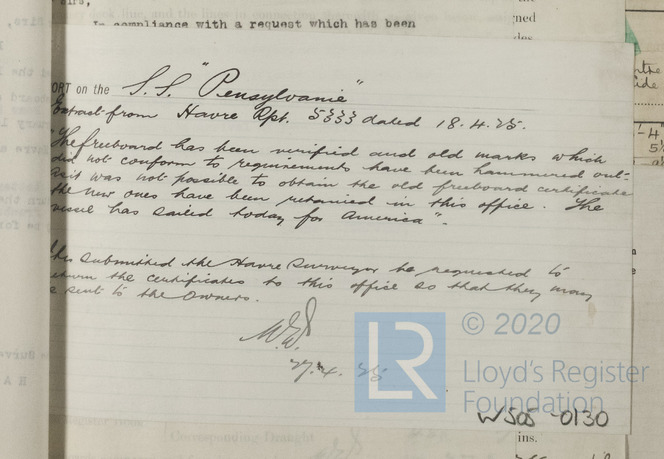 In compliance with a request which has been
ORT on the S.S. "Pensylvanie"
Extract from Havre Rpt. 5333 dated 18.4.25.
"The freeboard has been verified and old marks which
did not conform to requirements have been hammered out-
as it was not possible to obtain the old freeboard certificate
the new ones have been retained in this office. The
vessel has sailed today for America".
This submitted the Havre Surveyor be requested to
return the certificates to this office so that they may
be sent to the Owners.
27.4.25
© 2020
LR
Lloyd's Register
Foundation
W505-0130
Corresponding Draught
ins.